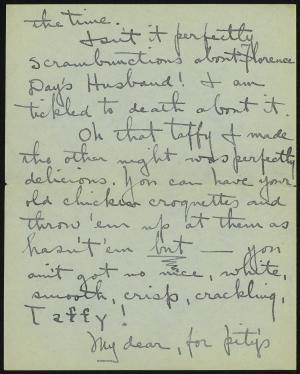 the time.
Isn't it perfectly
scrambunctions about Florence
Day's Husband! I am
tickled to death about it.
Oh that taffy I made
the other night was perfectly
delicious. You can have your
old chicken croquettes and
throw 'em up at them as
hasn't 'em but — you
ain't got no nice, white,
smooth, crisp, crackling,
Taffy!
My dear, for pity's